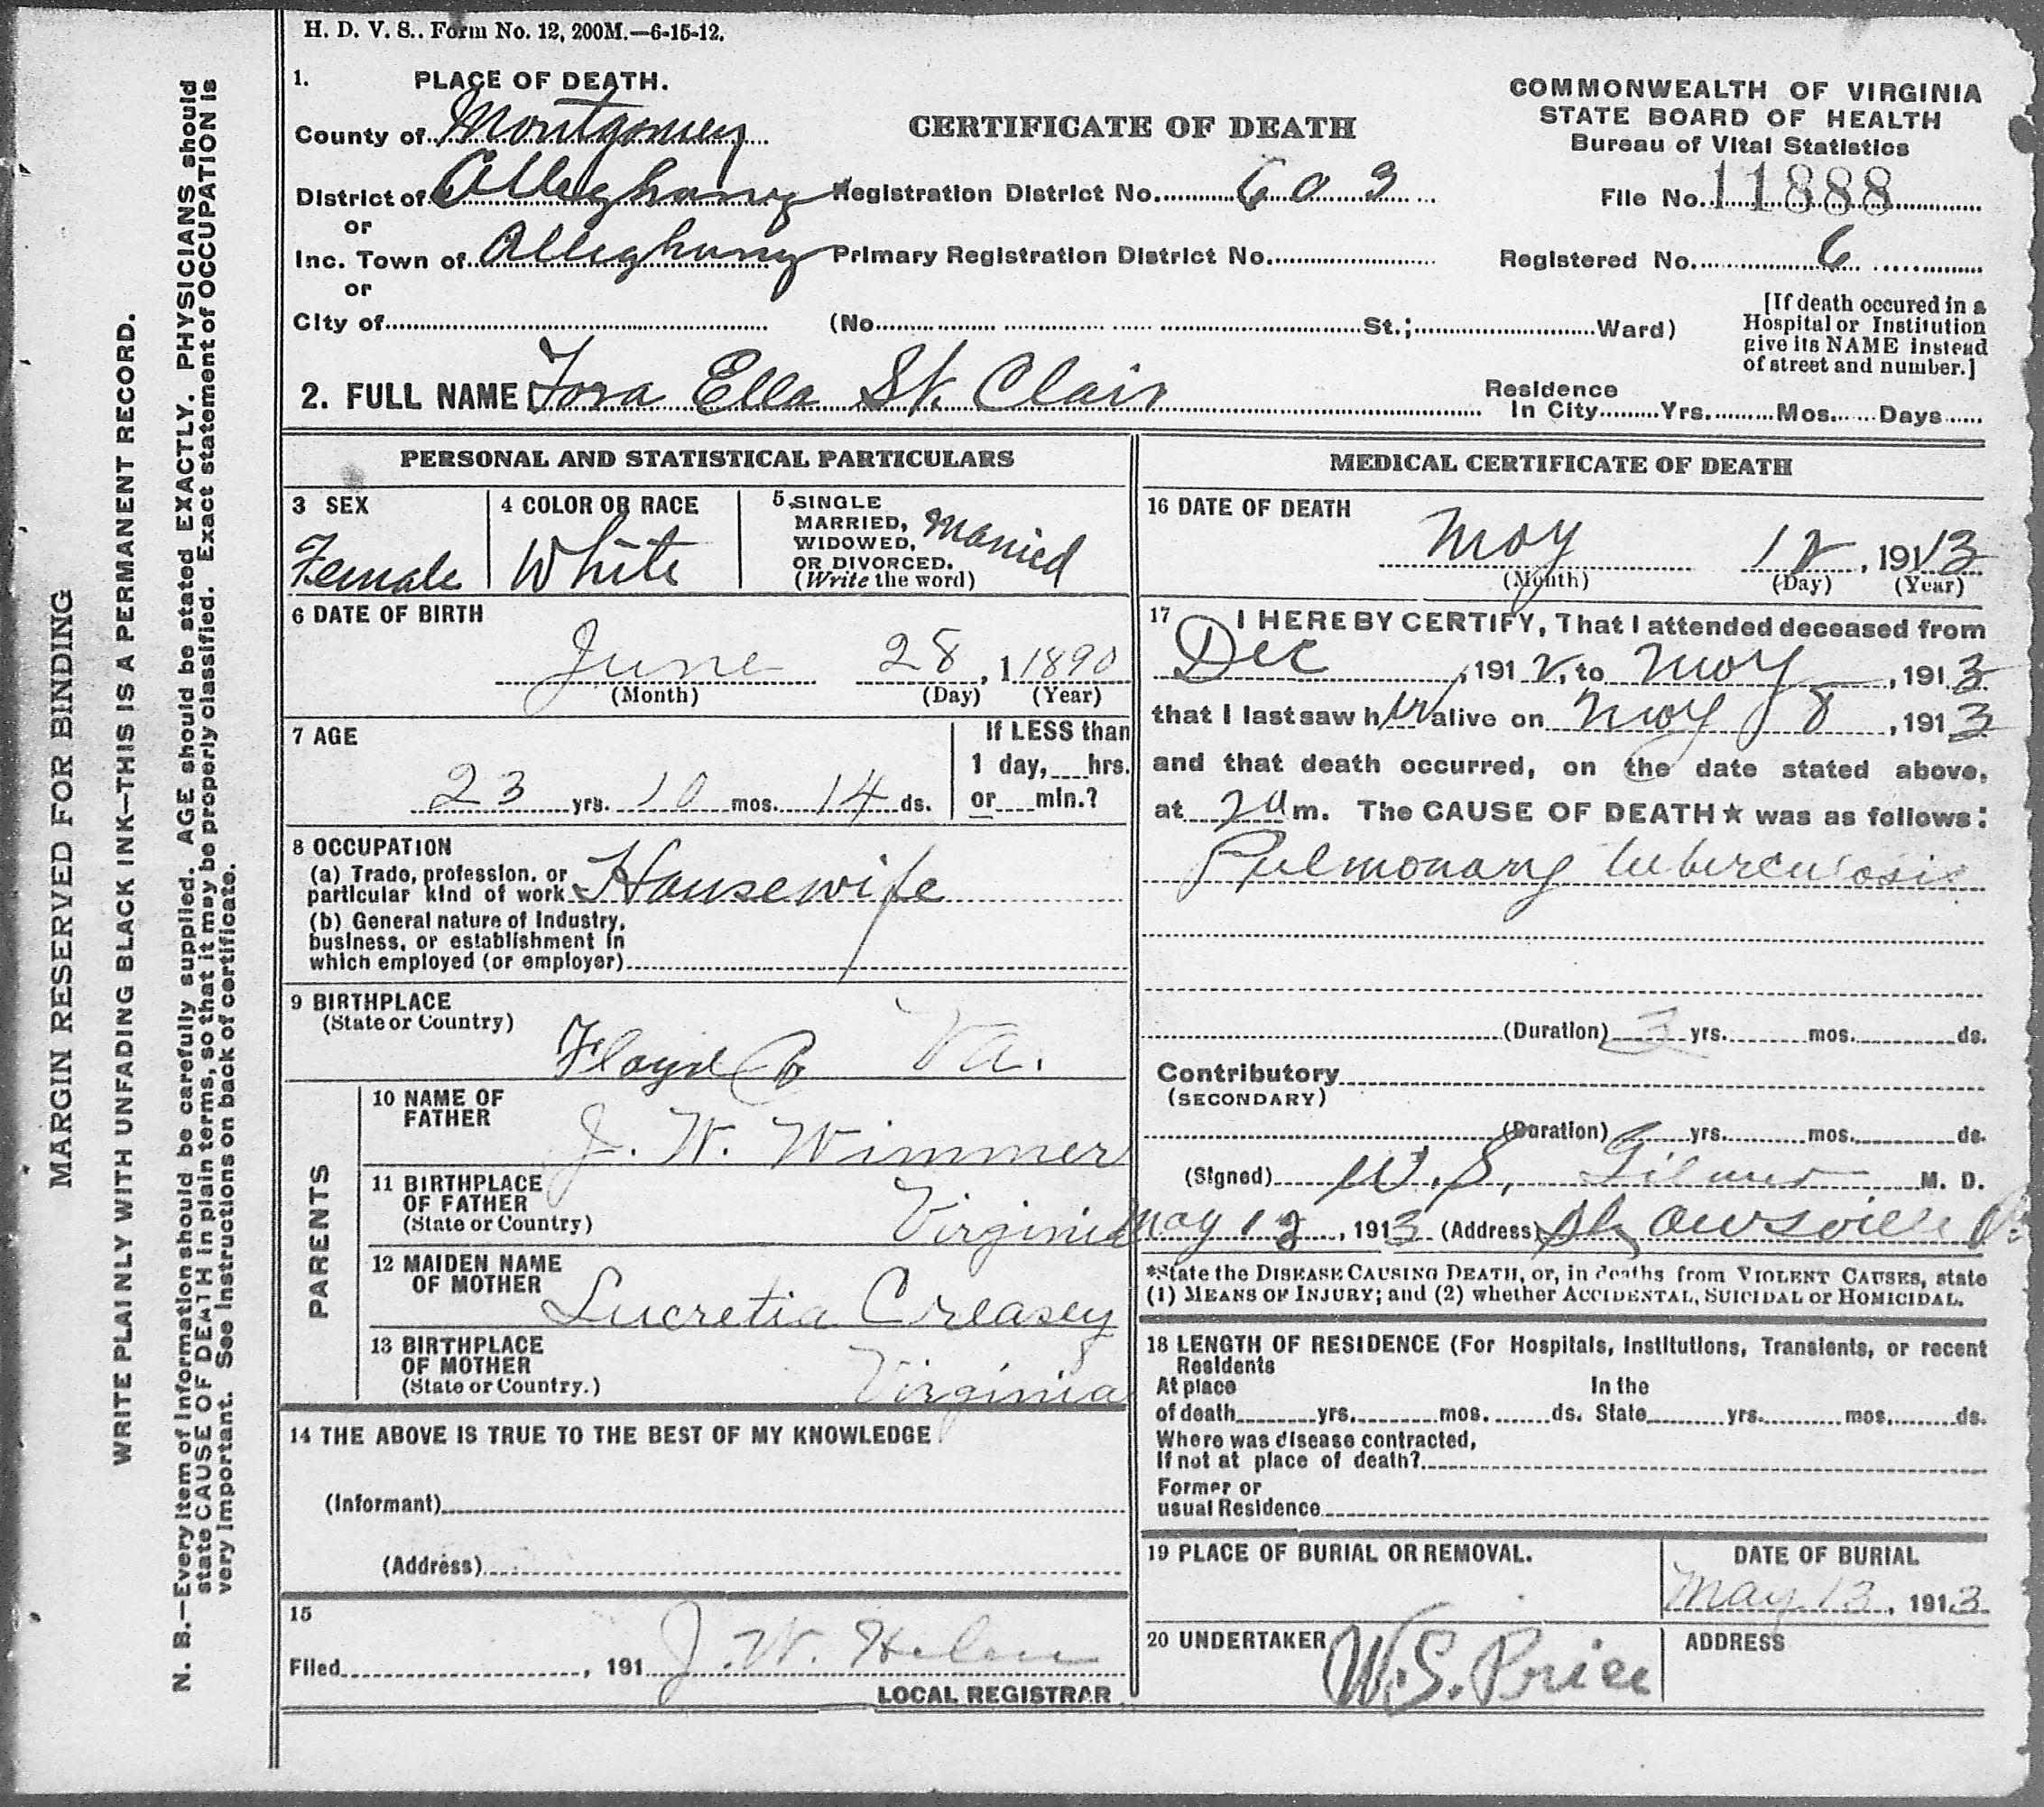 H. D. V. S.. Form No. 12, 200M.—6-15-12.
1. PLACE OF DEATH.
County of Montgomery
District of Alleghany
or
Inc. Town of Alleghany
or
City of
CERTIFICATE OF DEATH
Registration District No. 603
Primary Registration District No.
(No. St.; Ward)
COMMONWEALTH OF VIRGINIA
STATE BOARD OF HEALTH
Bureau of Vital Statistics
File No. 11888
Registered No. 6
[If death occured in a
Hospital or Institution
give its NAME instead
of street and number.]
2. FULL NAME Ella St. Clair
Residence
In City Yrs. Mos. Days
PERSONAL AND STATISTICAL PARTICULARS
3 SEX
Female
4 COLOR OR RACE
White
5 SINGLE
MARRIED,
WIDOWED,
OR DIVORCED.
(Write the word)
Married
6 DATE OF BIRTH
June 28, 1 1890
(Month) (Day) (Year)
7 AGE
23 yrs. 10 mos. 14 ds.
If LESS than
1 day, hrs.
or min.?
8 OCCUPATION
(a) Trade, profession, or
particular kind of work Housewife
(b) General nature of Industry,
business, or establishment in
which employed (or employer)
9 BIRTHPLACE
(State or Country)
Floyd Co Va.
PARENTS
10 NAME OF
FATHER
J. W. Wimmer
11 BIRTHPLACE
OF FATHER
(State or Country)
Virginia
12 MAIDEN NAME
OF MOTHER
Lucretia Creasey
13 BIRTHPLACE
OF MOTHER
(State or Country.)
Virginia
14 THE ABOVE IS TRUE TO THE BEST OF MY KNOWLEDGE
(Informant)
(Address)
15
Filed , 191 J. W. Helm
LOCAL REGISTRAR
MEDICAL CERTIFICATE OF DEATH
16 DATE OF DEATH
May 12, 1913
(Month) (Day) (Year)
17 I HEREBY CERTIFY, That I attended deceased from
Dec , 1912, to May , 1913
that I last saw her alive on May 8, 1913
and that death occurred, on the date stated above,
at 2 a m. The CAUSE OF DEATH★ was as follows:
Pulmonary tuberculosis
(Duration) 3 yrs. mos. ds.
Contributory
(SECONDARY)
(Duration) yrs. mos. ds.
(Signed) W. S. Gilmer M. D.
May 12, 1913 (Address)
*State the DISEASE CAUSING DEATH, or, in deaths from VIOLENT CAUSES, state
(1) MEANS OF INJURY; and (2) whether ACCIDENTAL, SUICIDAL or HOMICIDAL.
18 LENGTH OF RESIDENCE (For Hospitals, Institutions, Transients, or recent
Residents
At place In the
of death yrs. mos. ds. State yrs. mos. ds.
Where was disease contracted,
If not at place of death?
Former or
usual Residence
19 PLACE OF BURIAL OR REMOVAL.
DATE OF BURIAL
May 13, 1913
20 UNDERTAKER
W. S. Price
ADDRESS
MARGIN RESERVED FOR BINDING
WRITE PLAINLY WITH UNFADING BLACK INK—THIS IS A PERMANENT RECORD.
N. B.—Every item of information should be carefully supplied. AGE should be stated EXACTLY. PHYSICIANS should
state CAUSE OF DEATH in plain terms, so that it may be properly classified. Exact statement of OCCUPATION is
very important. See instructions on back of certificate.